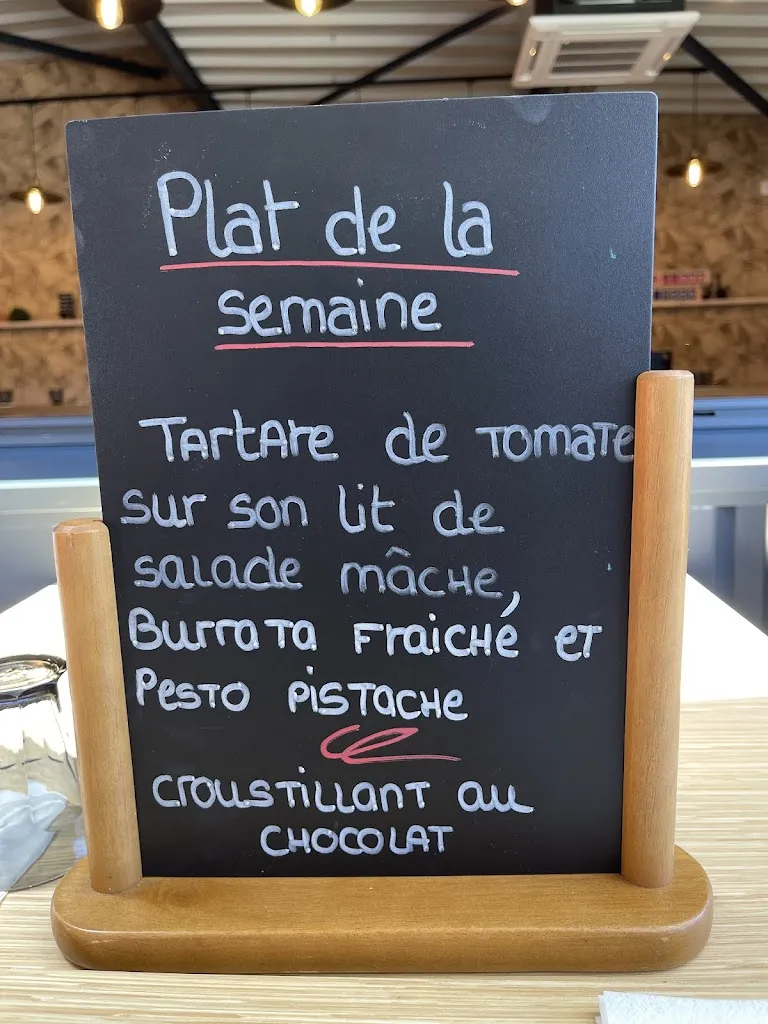 Plat de la
semaine
Tartare de tomate
sur son lit de
salade mâche,
Burrata Fraiche et
Pesto pistache
croustillant au
chocolat